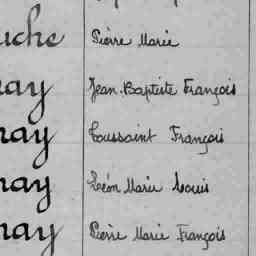 uche Pierre Marie
nay Jean-Baptiste François
nay Toussaint François
nay Léon Marie Louis
nay Pierre Marie François